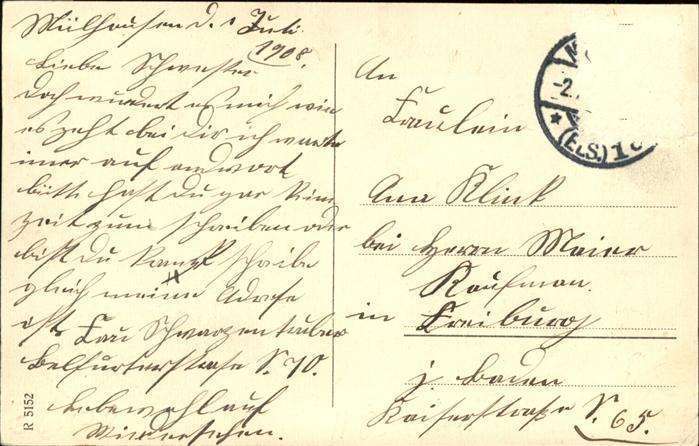 Mülhausen d. 1 Juli
1908.
Liebe Schwester
Doch wundert es mich wie
es geht bei Dir ich warte
imer auf andwort
bütte hast du gar kein
zeit zum schreiben oder
bist Du krank schreibe
gleich meine Adrese
ist Frau Schwarzentruber
Belfurterstrase N. 70.
Lebewohl auf
Wiedersehen.
An
Fräulein
Ana Klink
bei Herrn Maier
Kaufman.
in Freiburg
i Baden
Kaiserstraße N. 65.
-2.
* (ELS.) 1
R 5152